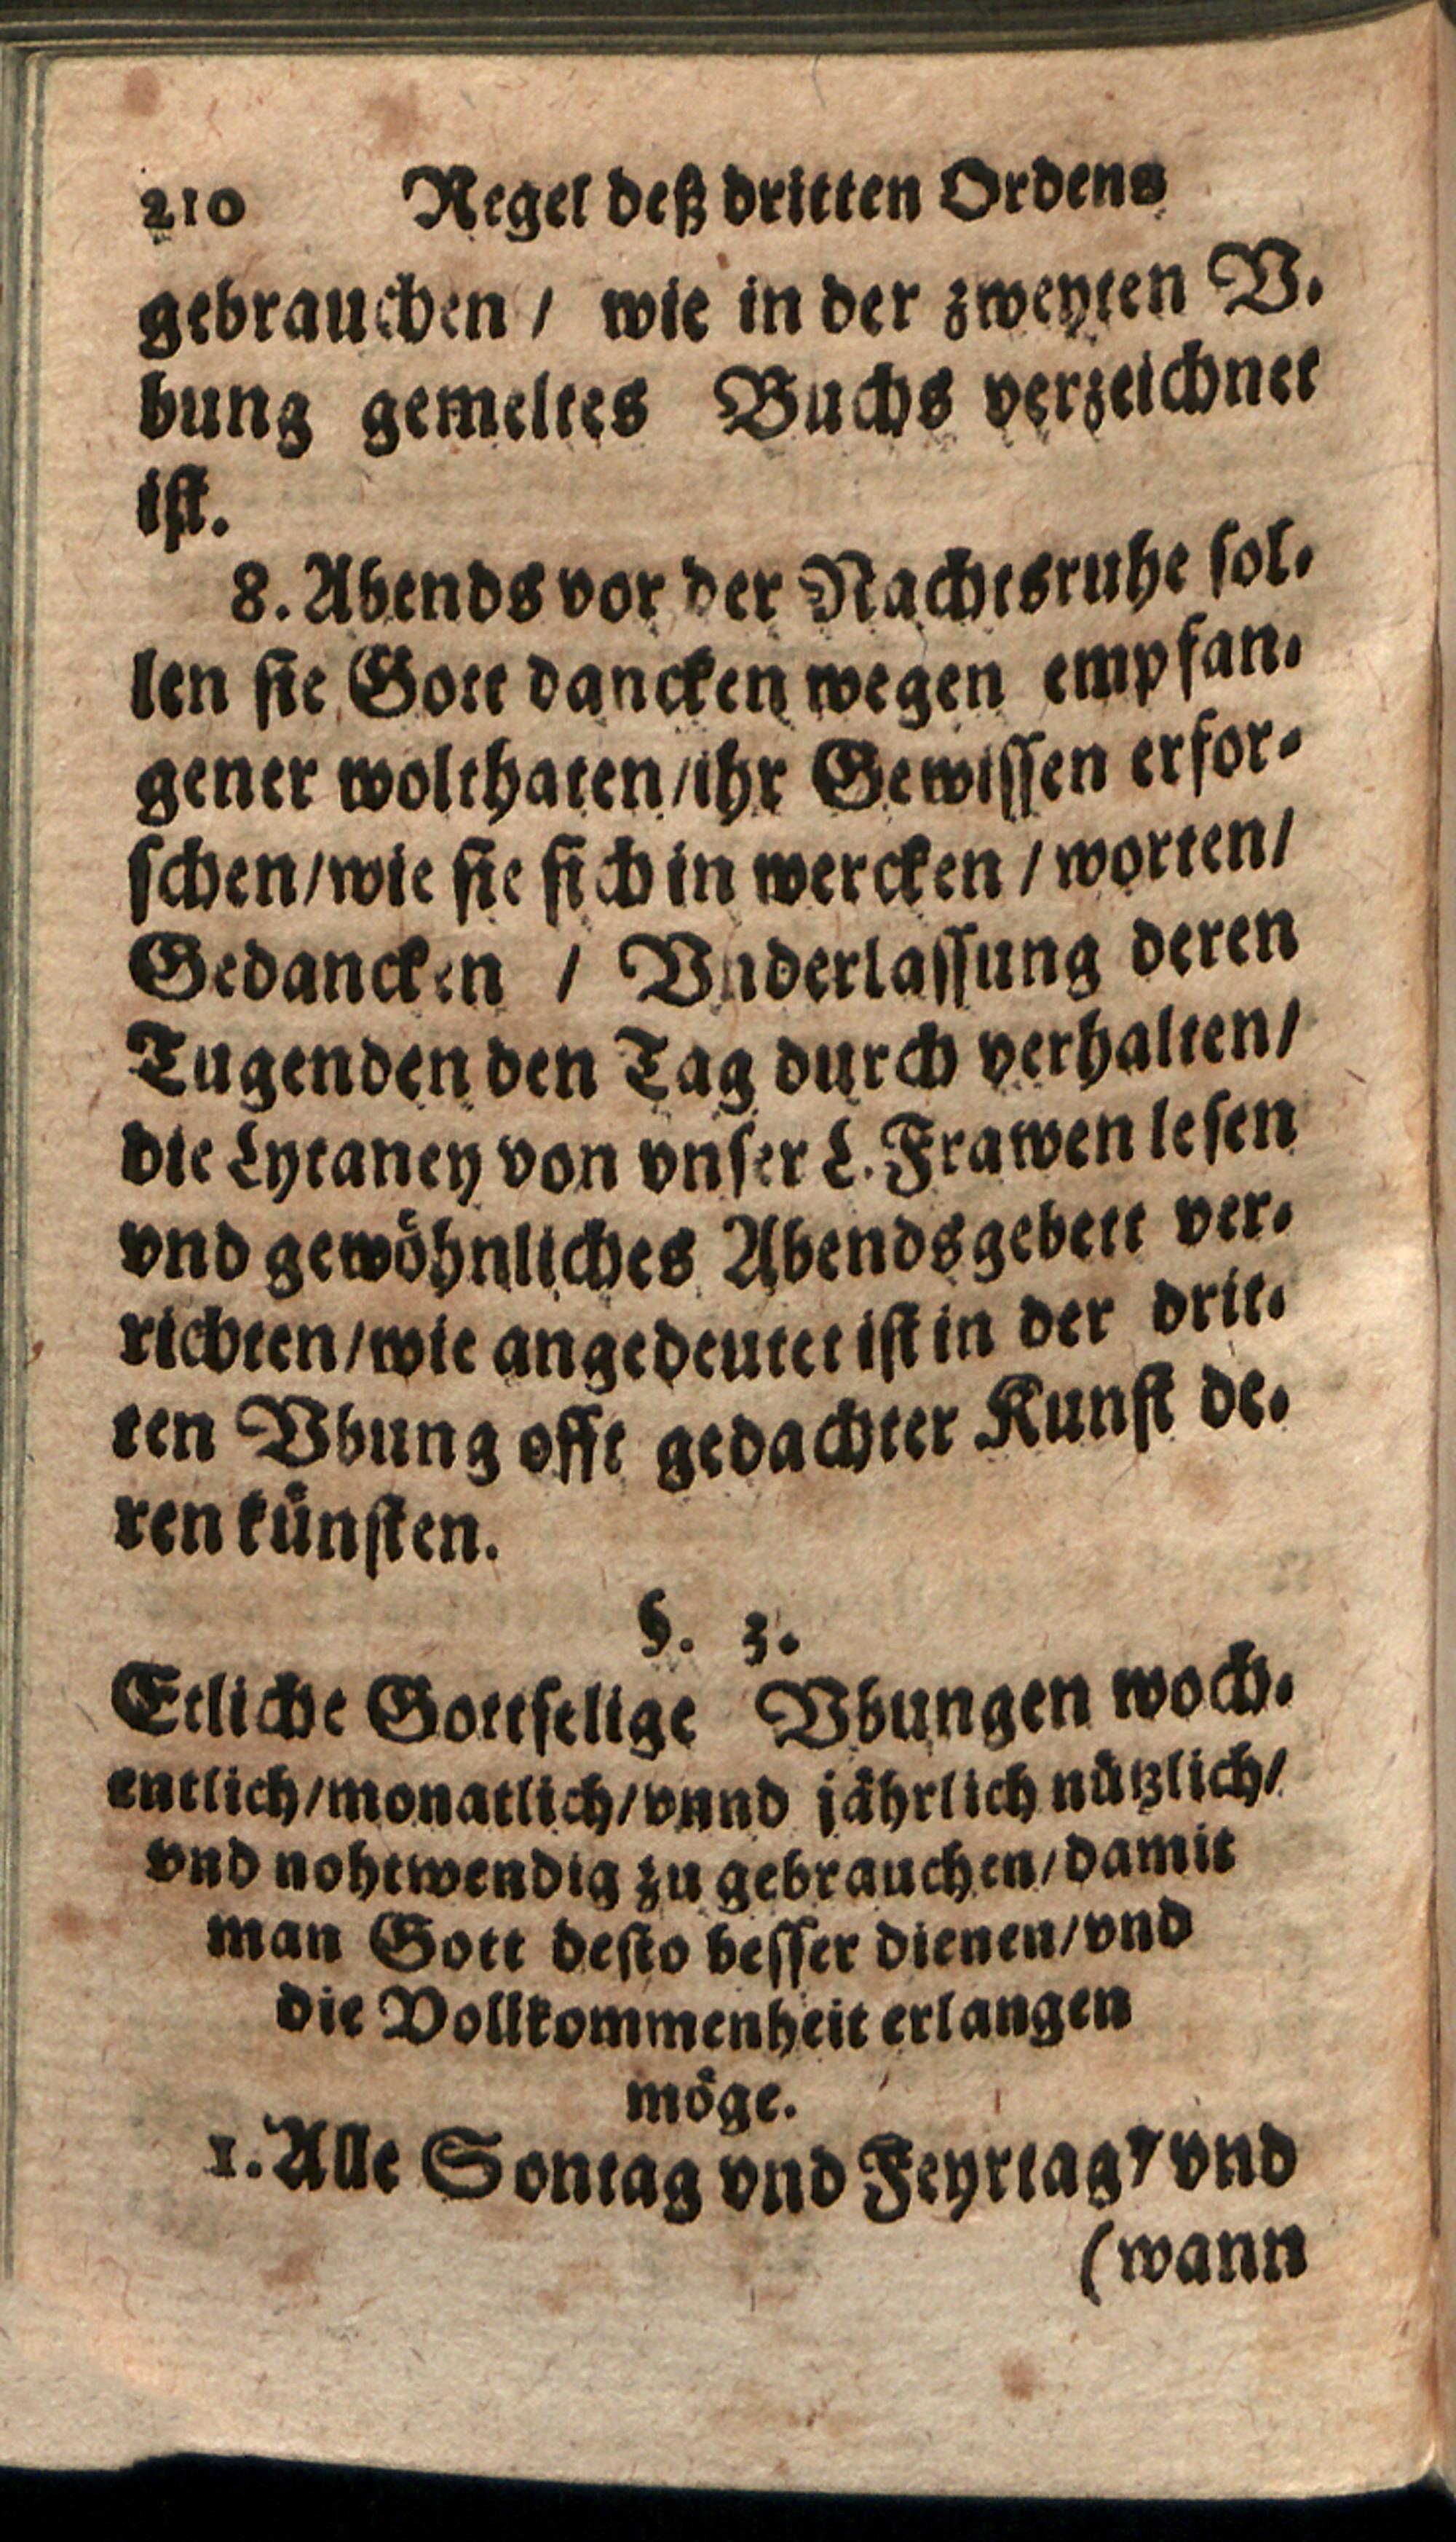 210 Regel deß dritten Ordens
gebrauchen / wie in der zweyten V-
bung gemeltes Buchs verzeichnet
ist.
8. Abends vor der Nachtsruhe sol-
len sie Gott dancken wegen empfan-
gener wolthaten/ihr Gewissen erfor-
schen/wie sie sich in wercken / worten/
Gedancken / Vnderlassung deren
Tugenden den Tag durch verhalten/
die Lytaney von vnser L. Frawen lesen
vnd gewöhnliches Abendsgebett ver-
richten/wie angedeutet ist in der drit-
ten Vbung offt gedachter Kunst de-
ren künsten.
§. 3.
Etliche Gottselige Vbungen woch-
entlich/monatlich/vnnd jährlich nützlich/
vnd nohtwendig zu gebrauchen/damit
man Gott desto besser dienen/vnd
die Vollkommenheit erlangen
möge.
1. Alle Sontag vnd Feyrtag/ vnd
(wann